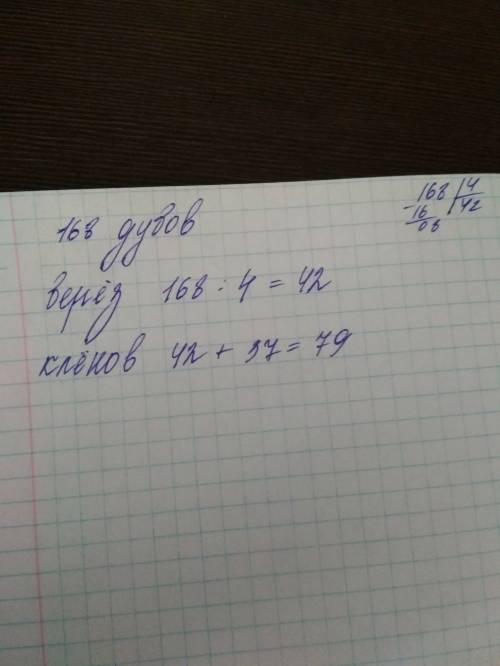 168 дубов
берёз 168 : 4 = 42
клёнов 42 + 37 = 79
-168 | 4
16 42
08